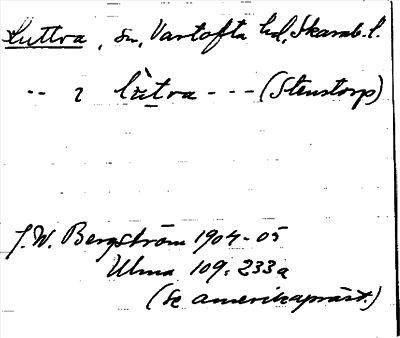 Luttra, sn, Vartofta hd, Skarab. l.
-- i lùtra --- (Stenstorp)
J. W. Bergström 1904-05
Ulma 109:233a
(Se amerikapräst.)